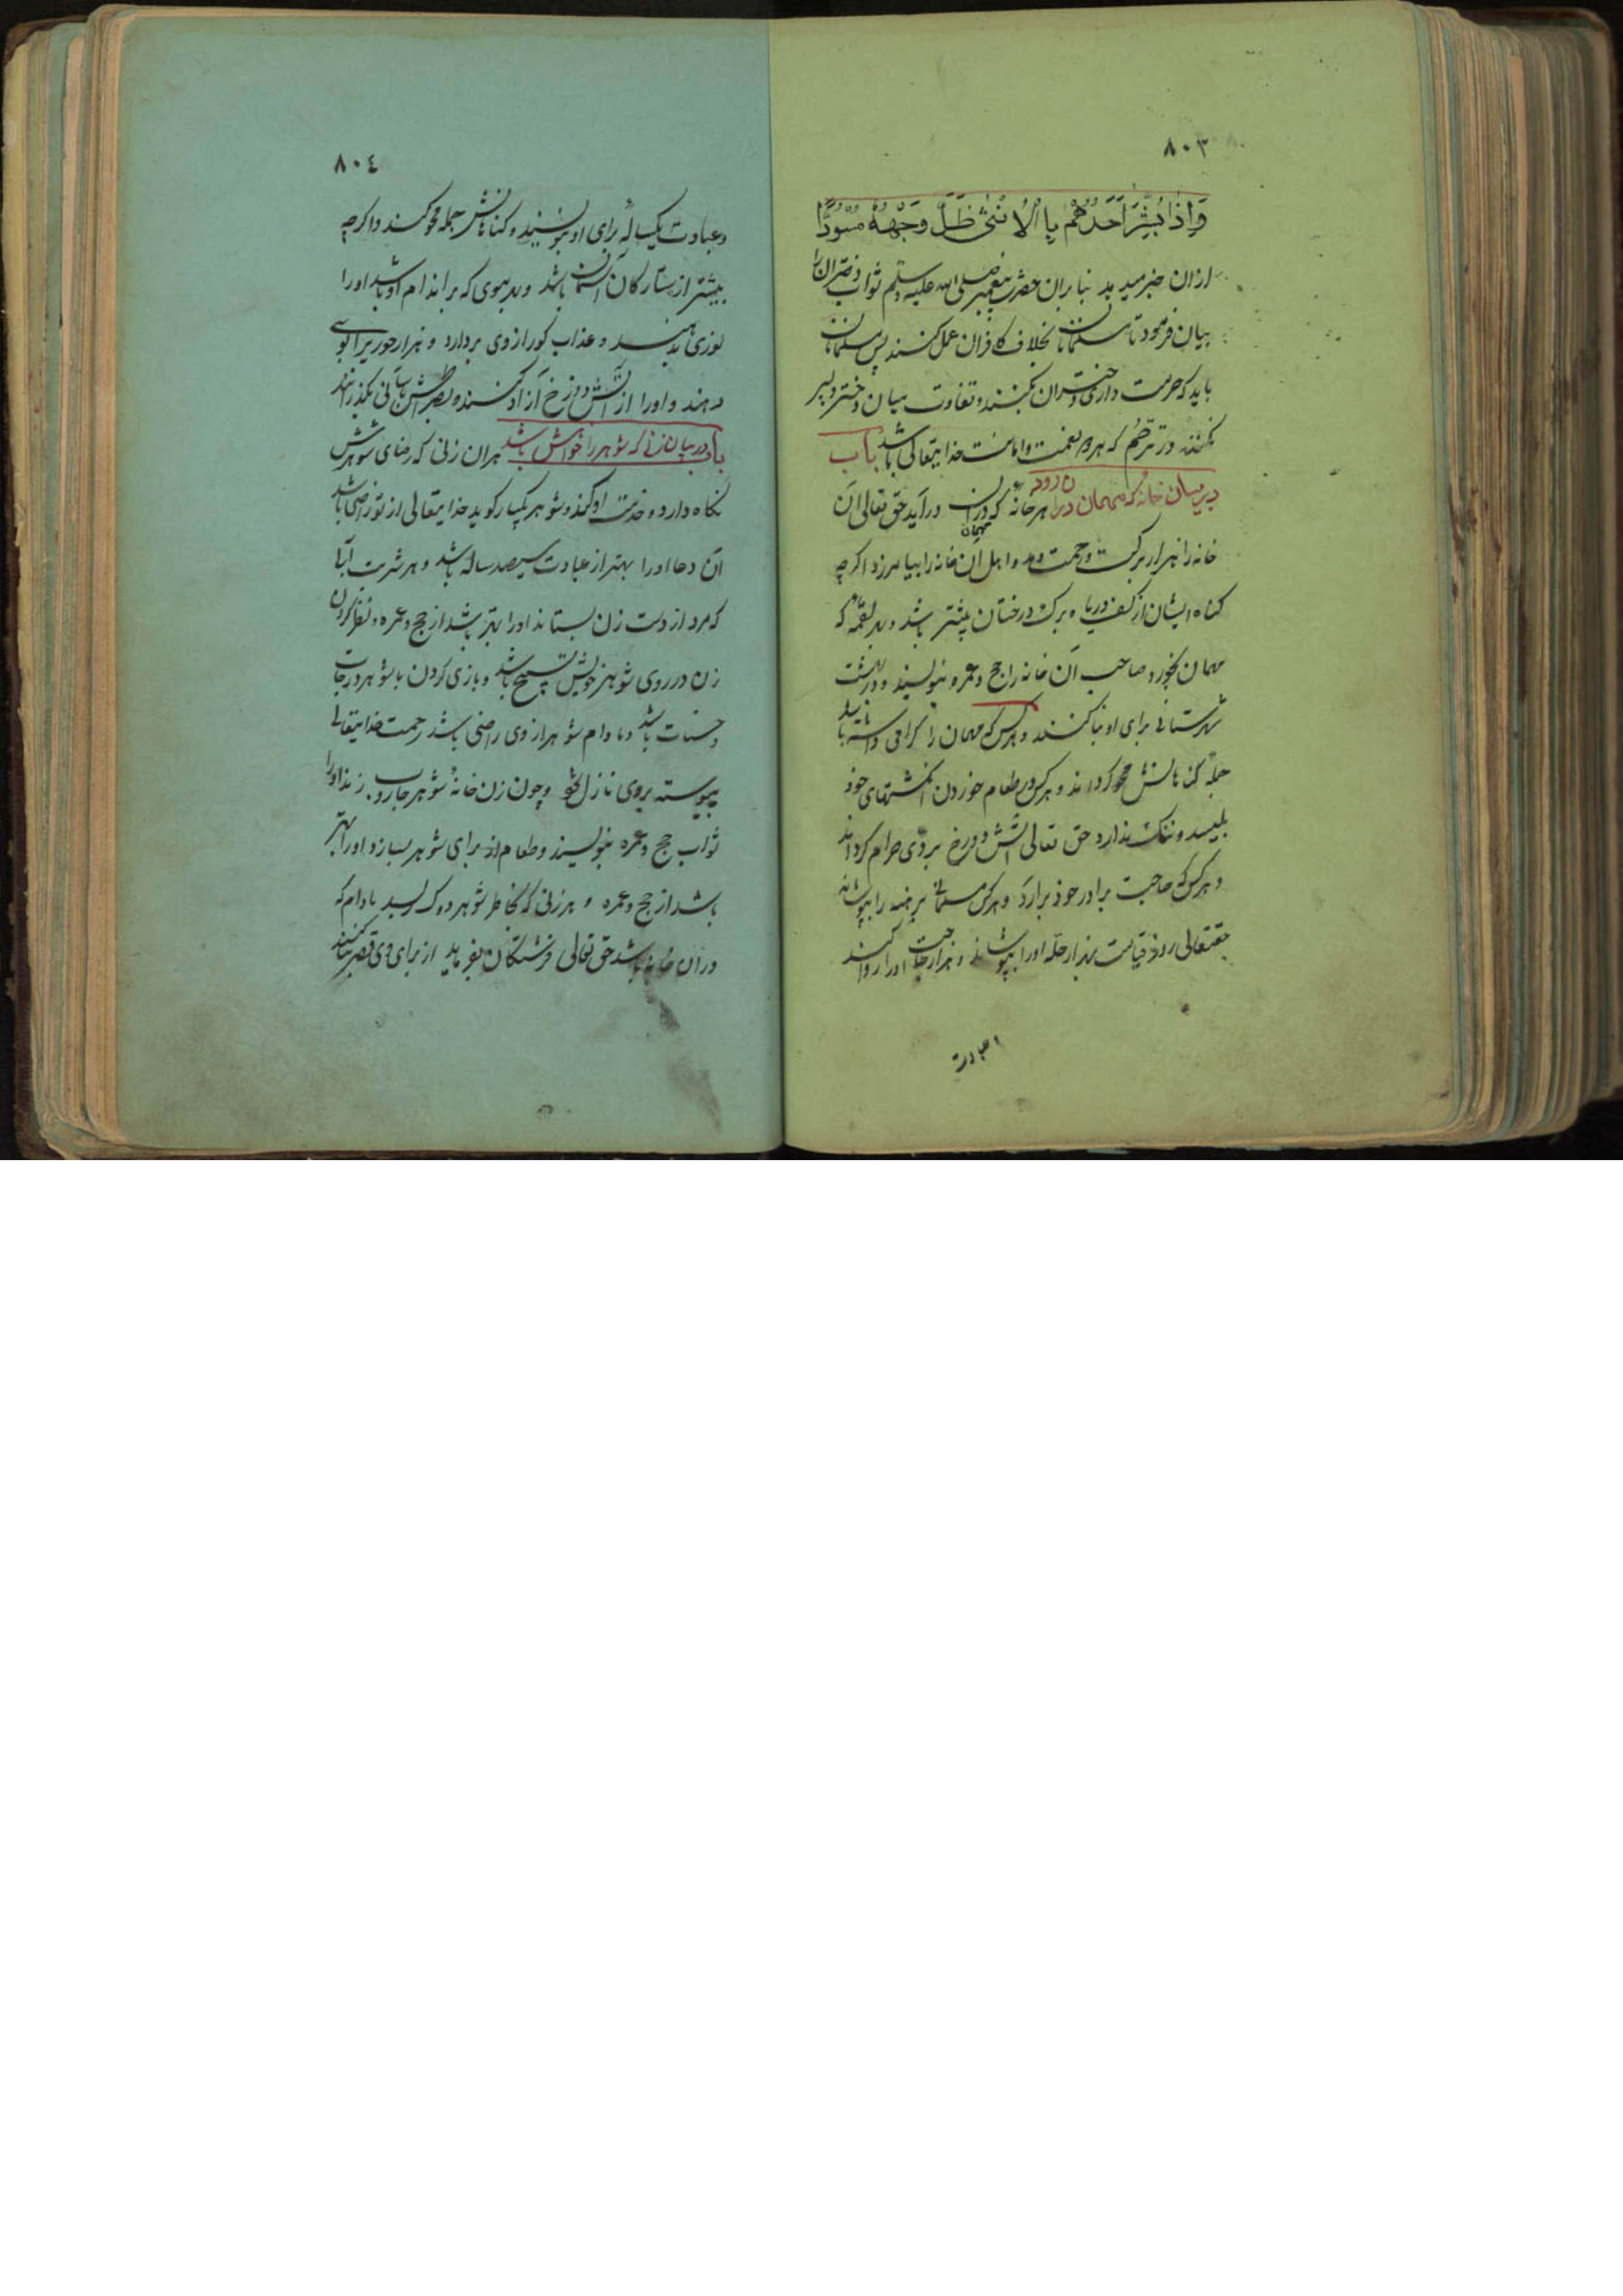 ٨٠٣
وَاِذَا بُشِّرَ اَحَدُهُمْ بِاالْاُنْثٰى ظَلَّ وَجْهُهُ مُسْوَدًّا
ازان خبر میدهد بنابران حضرت پیغمبر صلی الله علیه وسلم ثواب دختران را
بیان فرمود تا مسلمانان بخلاف کافران عمل کنند پس مسلمانان
باید که حرمت داری دختران بکنند و تفاوت میان دختر و پسر
نکنند که هر دو نعمت و امانت خدایتعالی باشد باب
در بیان خانه که مهمان دران رود هر خانه که دران مهمان درآید حق تعالی آن
خانه را هزار برکت و رحمت دهد و اهل آن خانه را بیامرزد اکرچه
کناه ایشان از کف دریا و برک درختان بیشتر باشد و بهر لقمه که
مهمان بخورد صاحب آن خانه را حج و عمره بنویسند و در بهشت
شهرستانی برای او بنا کنند و هرکس که مهمان را کرامی داشته باشد
جمله کناهانش محو کردانند و هرکس در طعام خوردن انکشتهای خود
بلیسد و ننک ندارد حق تعالی آتش دوزخ بر وی حرام کرداند
و هرکس که حاجت برادر خود برارد و هرکس مسلمانی برهنه را بپوشاند
حقتعالی روز قیامت هزار حله او را بپوشاند و هزار حاجت او را روا کند
٨٠٤
و عبادت یکساله برای او بنویسند و کناهانش جمله محو کنند و اکرچه
بیشتر از ستارکان آسمان باشد و بهر موی که بر اندام او باشد او را
نوری بدهند و عذاب کور از وی بردارد و هزار حور
دهند و او را از آتش دوزخ آزاد کنند و بصراطش باسانی بکذرانند
باب در بیان زنی که شوهر را خواهش باشد هران زنی که رضای شوهرش
نکاه دارد و خدمت او کند و شوهر یکبار کوید خدایتعالی از تو راضی باشد
آن دعا او را بهتر از عبادت سیصد ساله باشد و هر شربت آبا
که مرد از دست زن بستاند او را بهتر باشد از حج و عمره و نظر کردن
زن در روی شوهر خویش تسبیح باشد و بازی کردن با شوهر درجات
و حسنات باشد و مادام شوهر از وی راضی باشد رحمت خدایتعالی
پیوسته بروی نازل شود و چون زن خانه شوهر جاروب زند او را
ثواب حج و عمره بنویسند و طعام از برای شوهر بسازد او را بهتر
باشد از حج و عمره و هر زنی که بخاطر شوهر دوک مادام که
دران خانه باشد حق تعالی فرشتکان بفرماید از برای وی قصر بنا کنند